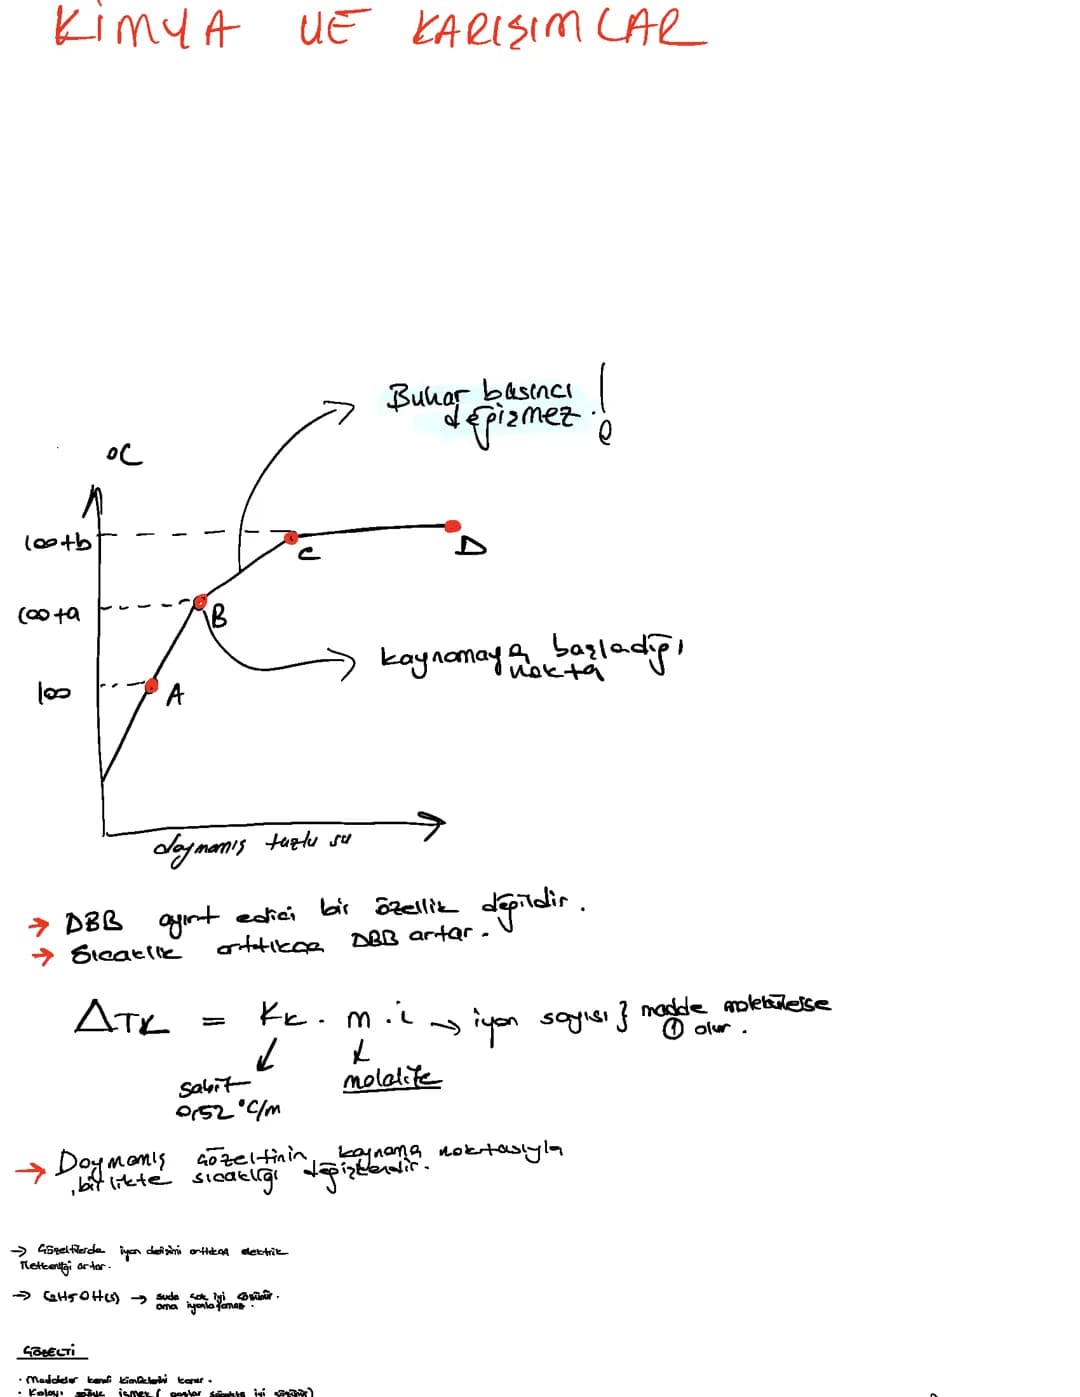 KİMYA VE KARIŞIMLAR
Buhar basıncı
değişmez!
°C
100+b
C
D
100+a
B
kaynamaya başladığı
nokta
100
A
doymamış tuzlu su
→ DBB ayırt edici bir özellik değildir.
→ Sıcaklık arttıkça DBB artar.
ΔTK = Kk . m . i → iyon sayısı } madde moleküllerse
① olur.
sabit
0,52 °C/m
molalite
→ Doymamış çözeltinin kaynama noktasıyla
birlikte sıcaklığı değişkendir.
→ Çözeltilerde iyon derişimi arttıkça elektrik
iletkenliği artar.
→ C2H5OH(s) → suda çok iyi çözünür.
ama iyonlaşamaz.
ÇÖZELTİ
• Maddeler kendi kimliklerini korur.